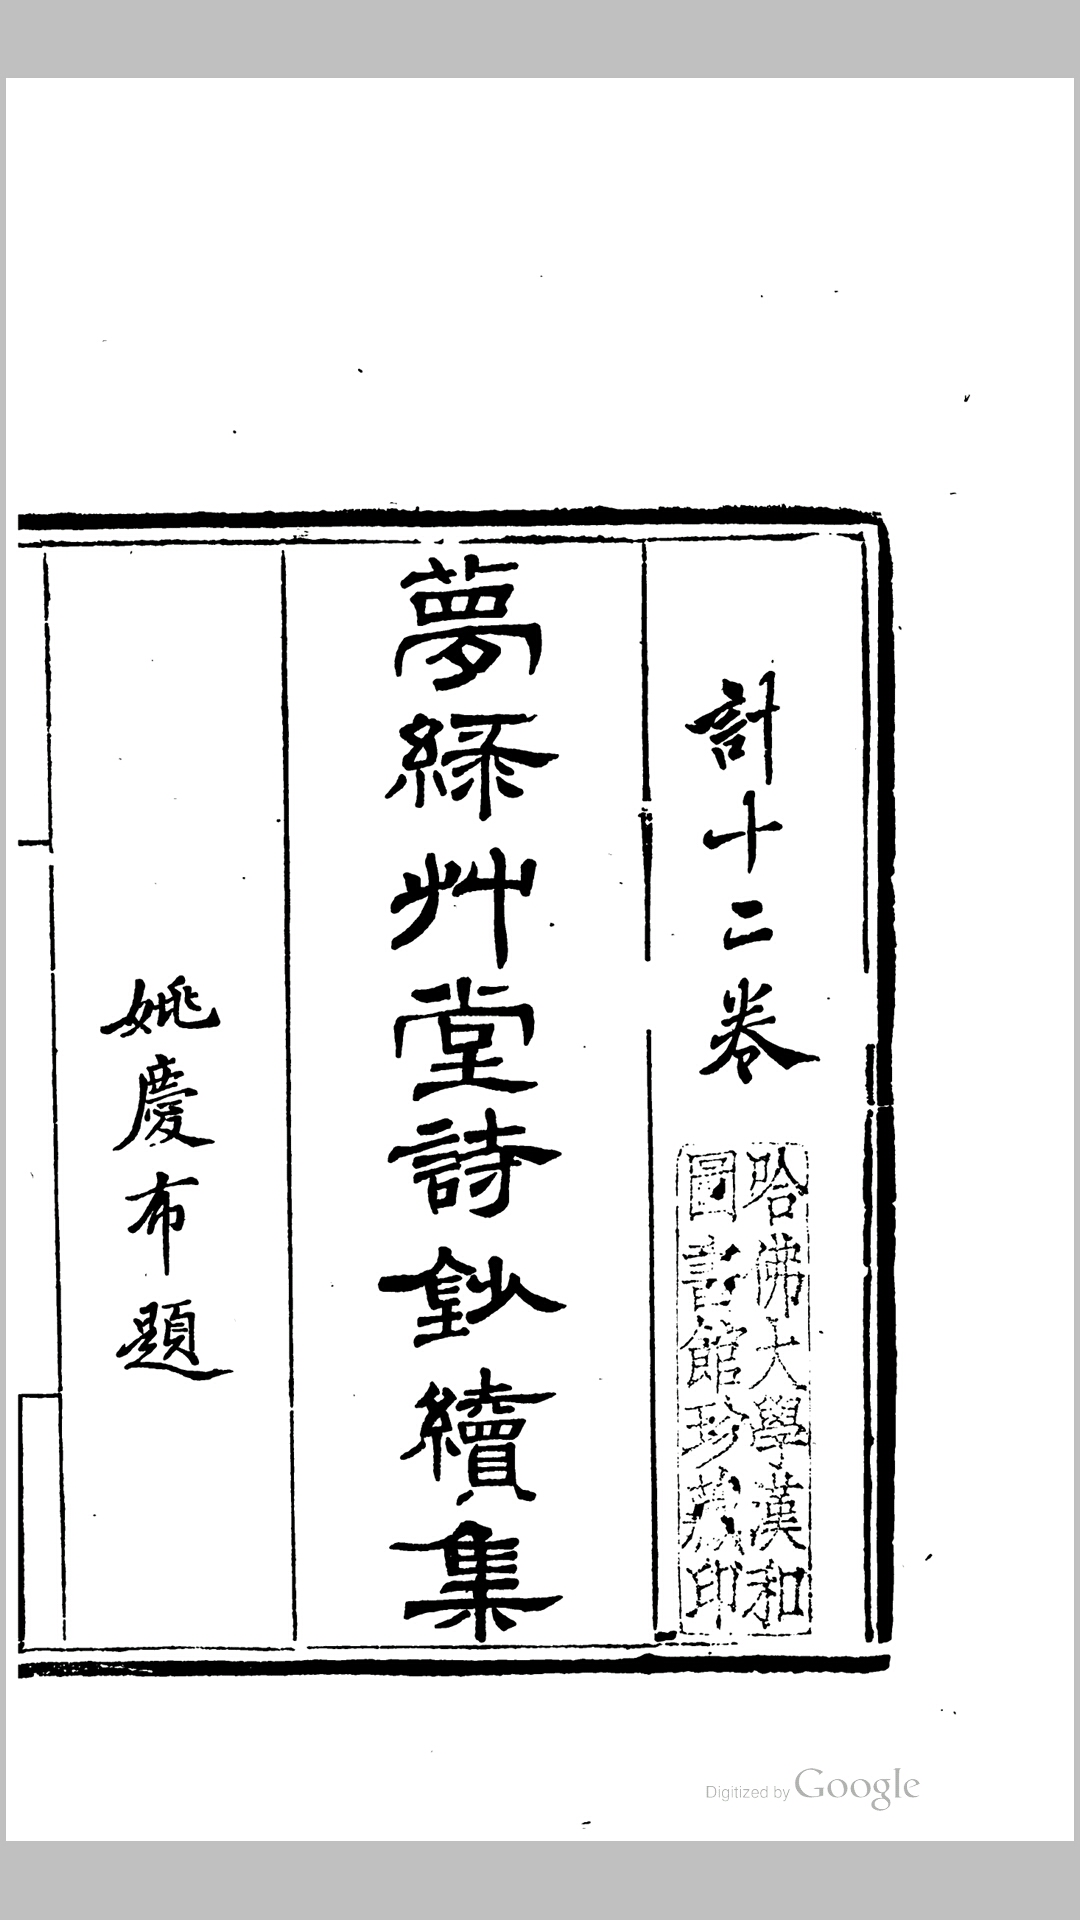 計十二卷
哈佛大學漢和
圖書館珍藏印
夢綠艸堂詩鈔續集
姚慶布題
Digitized by Google